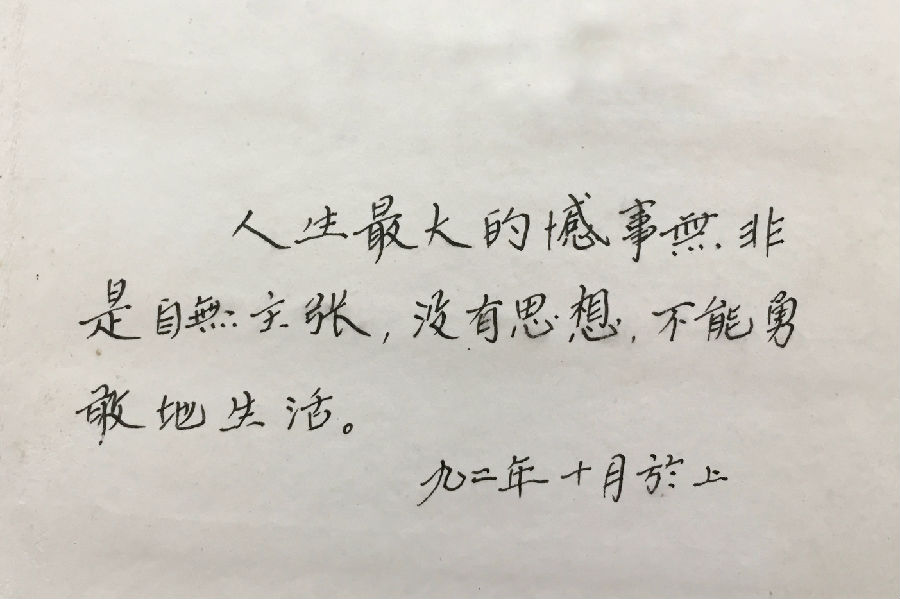 人生最大的憾事無非
是自無主张,没有思想,不能勇
敢地生活。
九二年十月於上